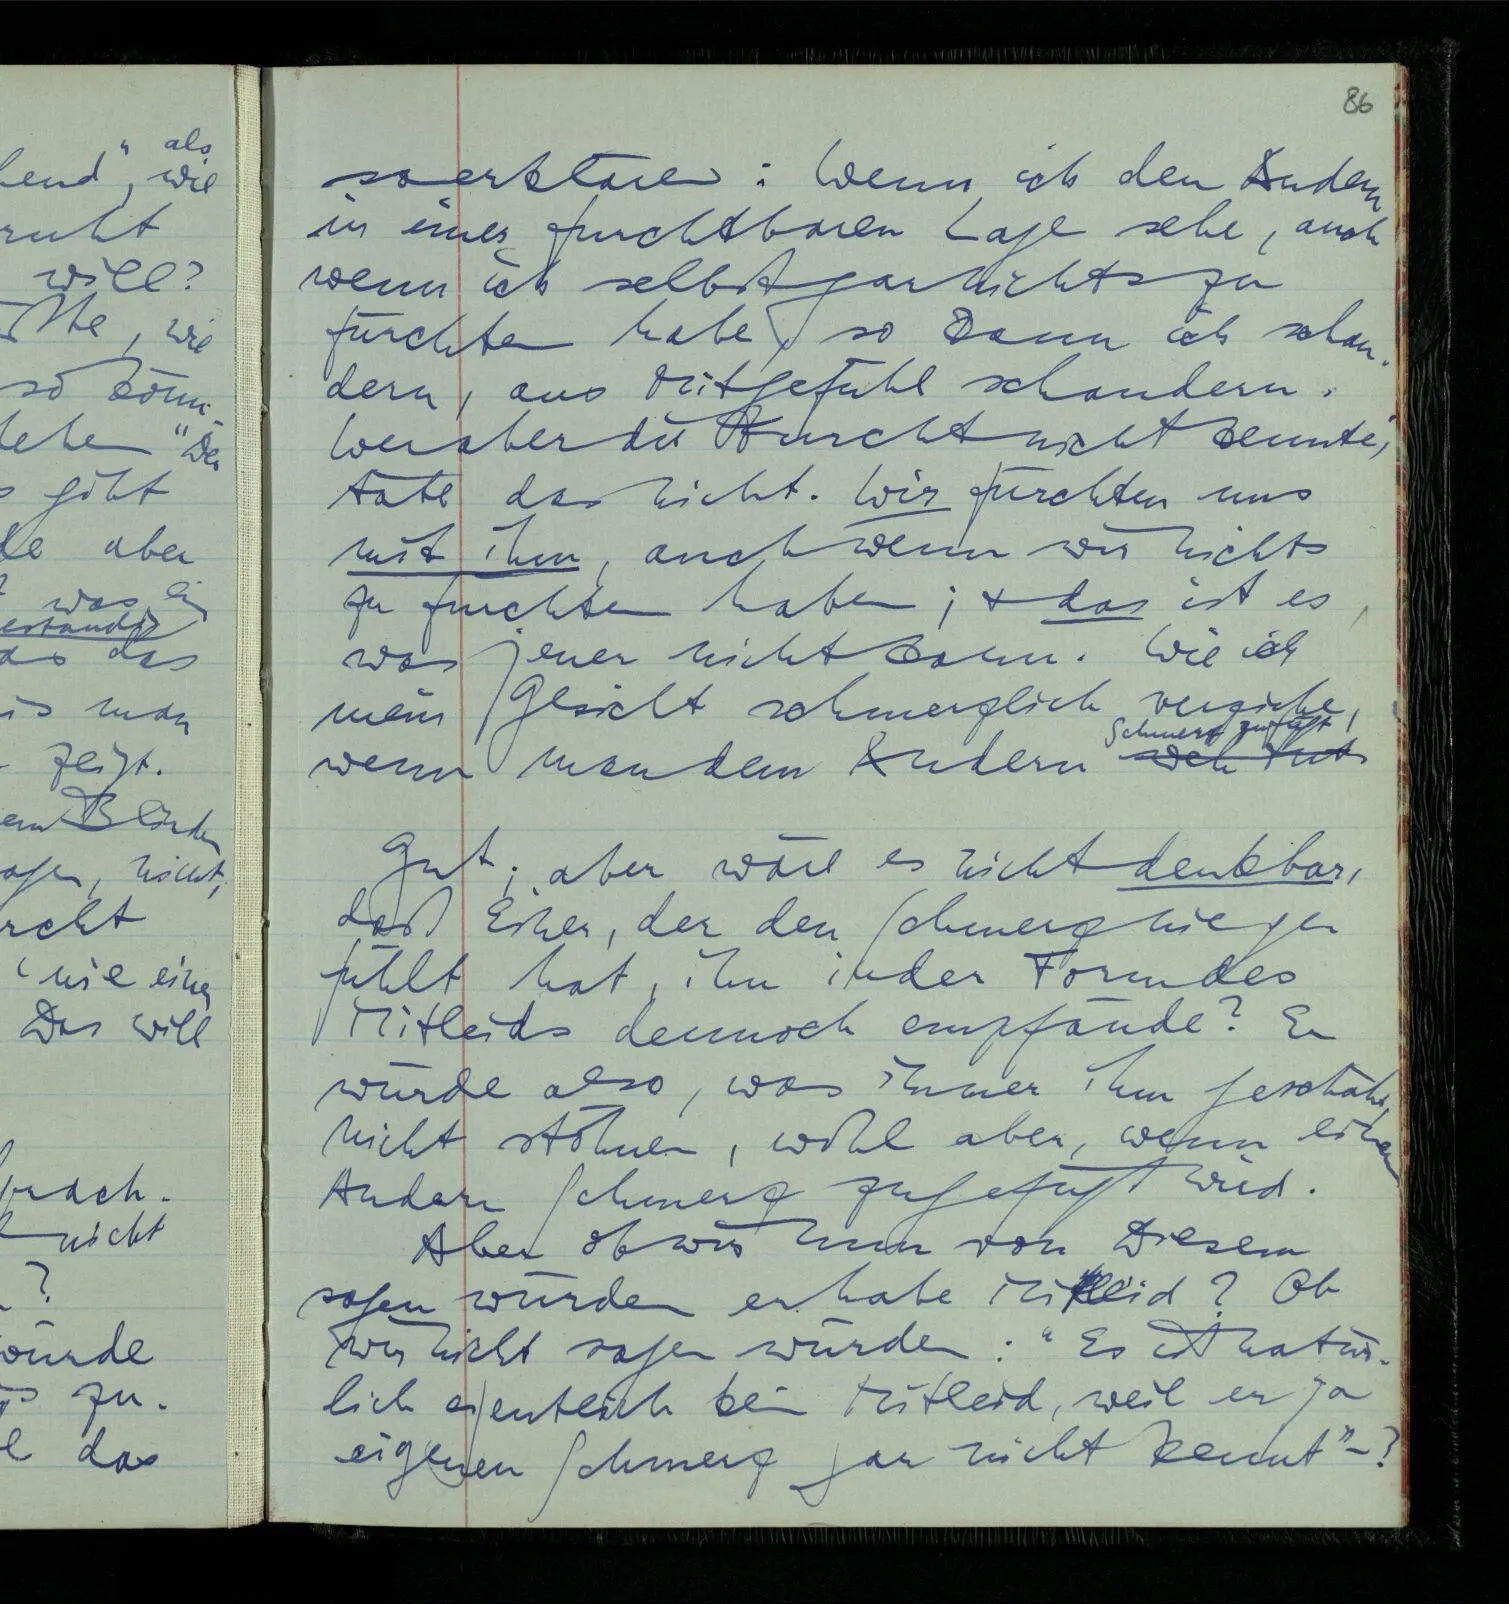 als
hend", wie
ruht
will?
tte, wie
so könn-
hehen "Der
s gibt
de aber
was ein
das
is man
zeigt.
Blinden
agen, nicht,
rcht
nie eine
Das will
prach.
nicht
?
würde
zu.
das
86
so erklären: Wenn ich den Andern
in einer furchtbaren Lage sehe, auch
wenn ich selbst gar nichts zu
fürchten habe, so kann ich schau-
dern, aus Mitgefühl schaudern.
Wer aber die Furcht nicht kennte,
täte das nicht. Wir fürchten uns
mit ihm, auch wenn wir nichts
zu fürchten haben; & das ist es,
was jener nicht kann. Wie ich
mein Gesicht schmerzlich verziehe,
Schmerz zufügt
wenn man dem Andern weh tut
Gut; aber wäre es nicht denkbar,
daß Einer, der den Schmerz nie ge
fühlt hat, ihn in der Form des
Mitleids dennoch empfände? Er
würde also, was immer ihm geschähe,
nicht stöhnen, wohl aber, wenn einem
Andern Schmerz zugefügt wird.
Aber ob wir nun von Diesem
sagen würden er habe Mitleid? Ob
wir nicht sagen würden: "Es ist natür-
lich eigentlich kein Mitleid, weil er ja
eigenen Schmerz gar nicht kennt" – ?